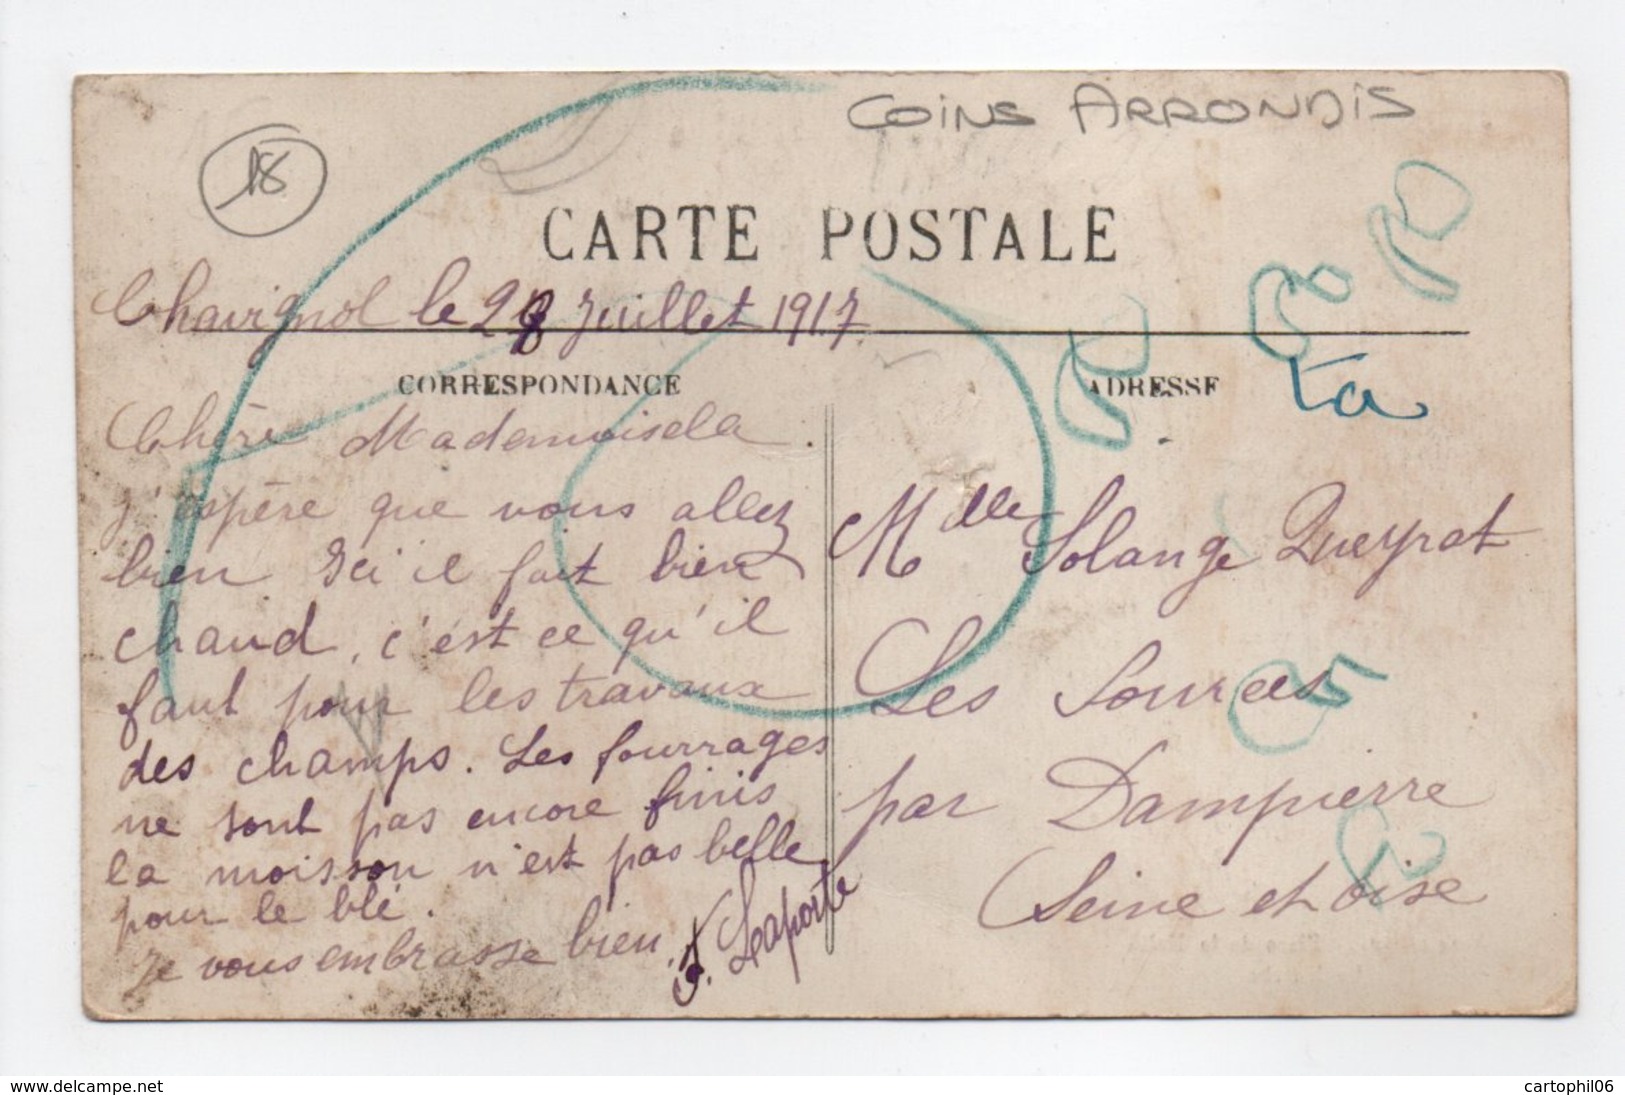 COINS ARRONDIS
18
CARTE POSTALE
Chavignol le 28 Juillet 1917
CORRESPONDANCE
ADRESSE
Ta
Chère Mademoisela.
j'espère que vous allez
bien Ici il fait bien
chaud, c'est ce qu'il
faut pour les travaux
des champs. Les fourrages
ne sont pas encore finis
la moisson n'est pas belle
pour le blé.
Je vous embrasse bien.
Laporte
Mdlle Solange Queyrat
Les Sources
par Dampierre
Seine et oise
www.delcampe.net
cartophil06